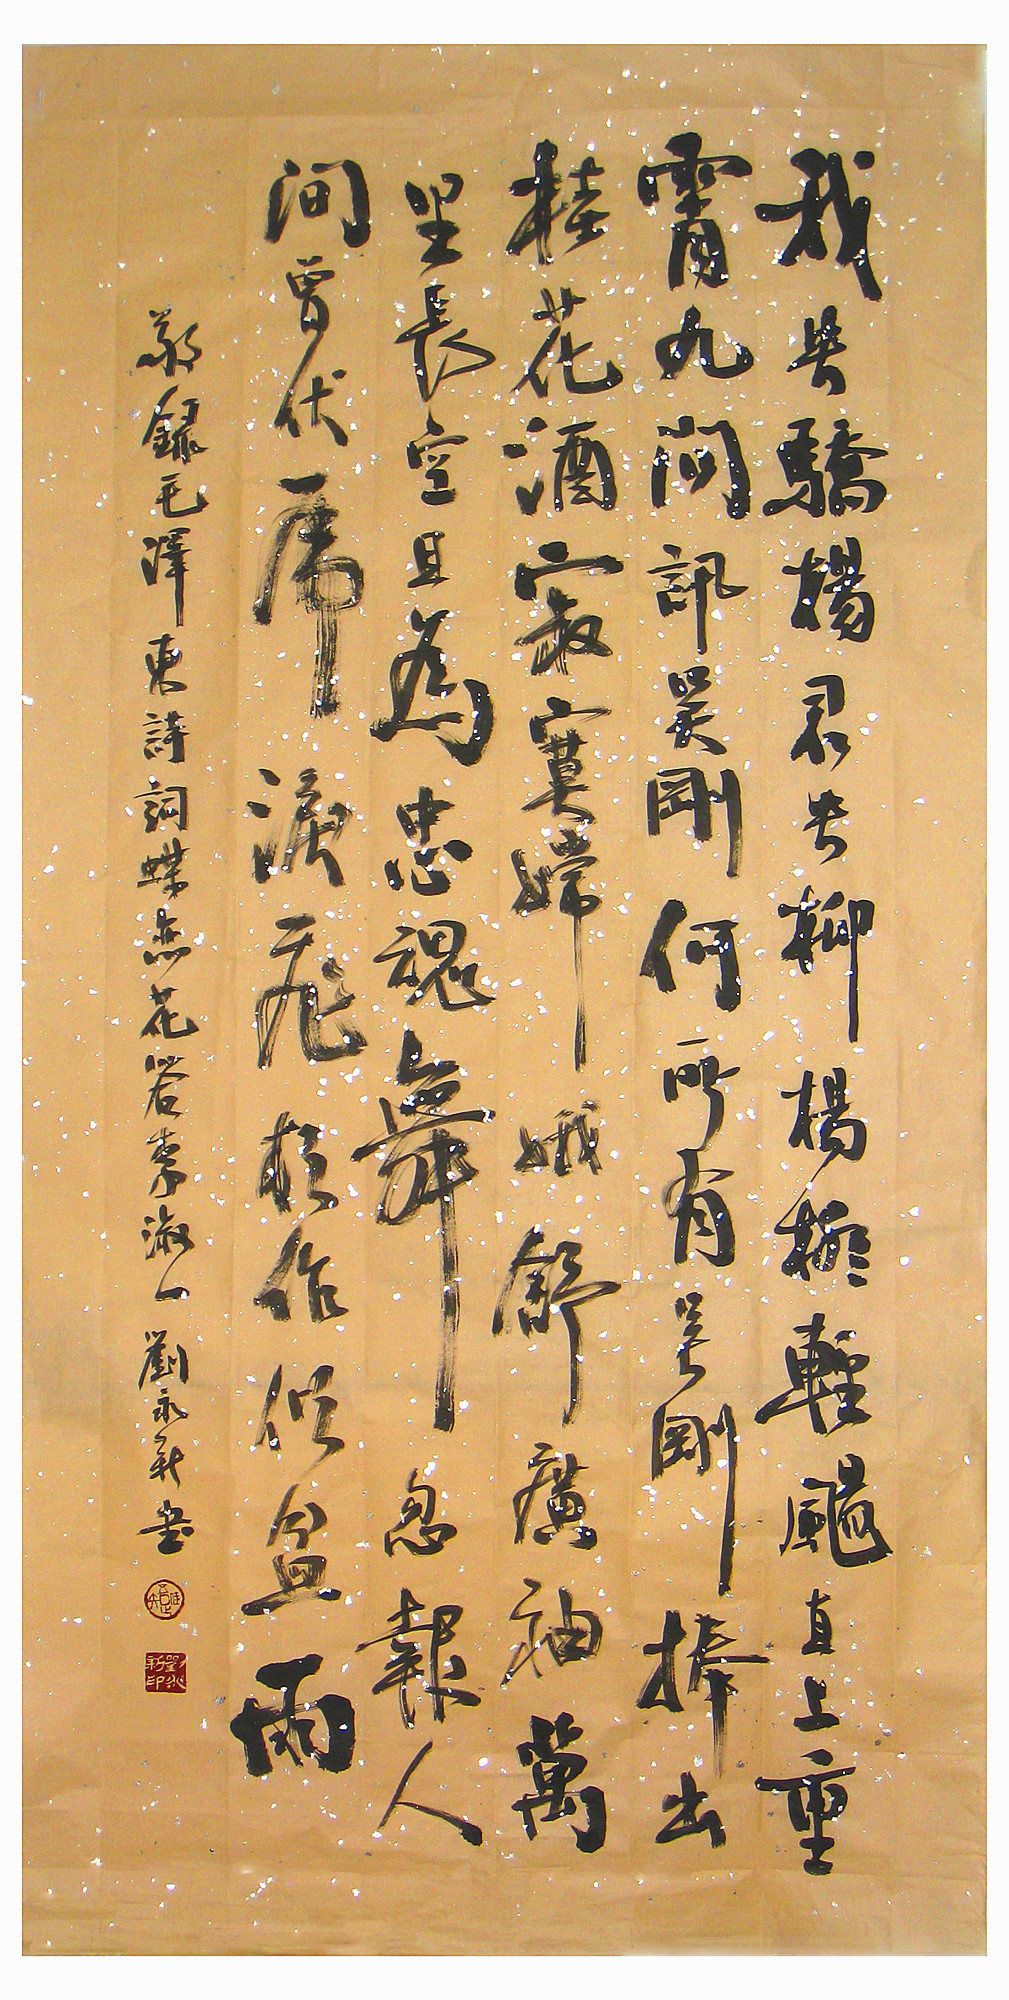 我失驕楊君失柳楊柳輕颺直上重
霄九問訊吴剛何所有吴剛捧出
桂花酒寂寞嫦娥舒廣袖萬
里長空且為忠魂舞忽報人
间曾伏虎淚飛頓作傾盆雨
敬錄毛澤東詩詞蝶恋花答李淑一 劉永新書